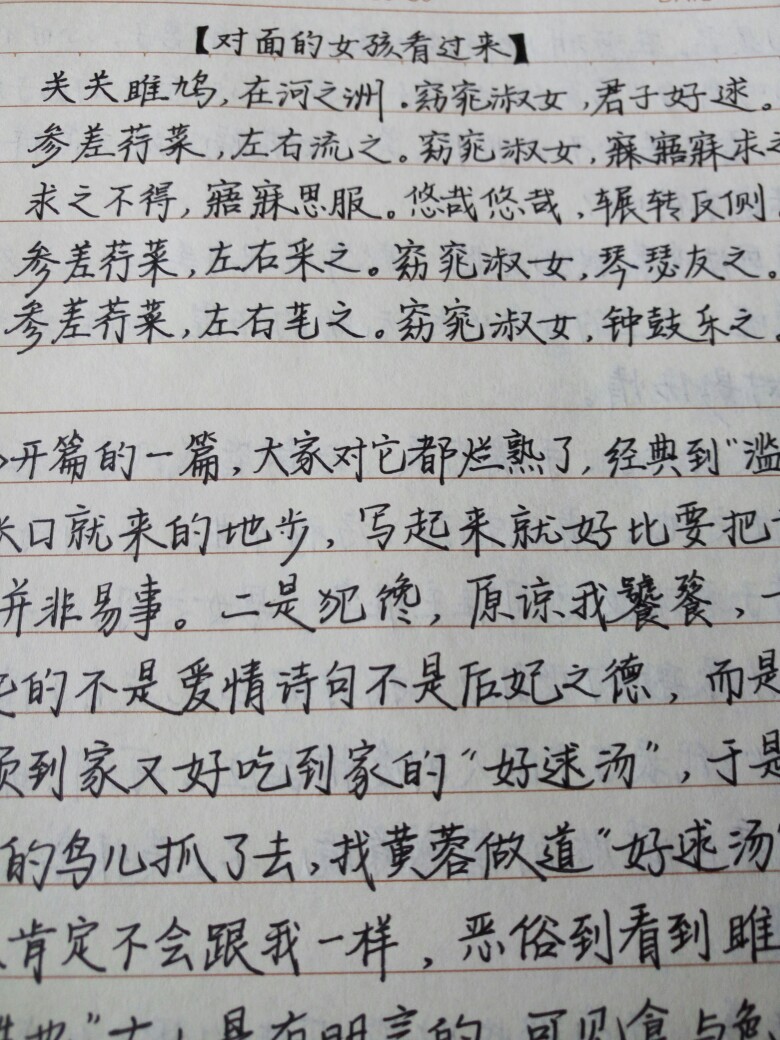 【对面的女孩看过来】
关关雎鸠,在河之洲.窈窕淑女,君子好逑。
参差荇菜,左右流之。窈窕淑女,寐寤寐求之
求之不得,寤寐思服。悠哉悠哉,辗转反侧
参差荇菜,左右采之。窈窕淑女,琴瑟友之。
参差荇菜,左右芼之。窈窕淑女,钟鼓乐之。
》开篇的一篇,大家对它都烂熟了,经典到"滥
口就来的地步,写起来就好比要把
并非易事。二是犯馋,原谅我饕餮,一
的不是爱情诗句不是后妃之德,而是
到家又好吃到家的"好逑汤",于是
的鸟儿抓了去,找黄蓉做道"好逑汤"
肯定不会跟我一样,恶俗到看到雎
是有明言的,可见食与色